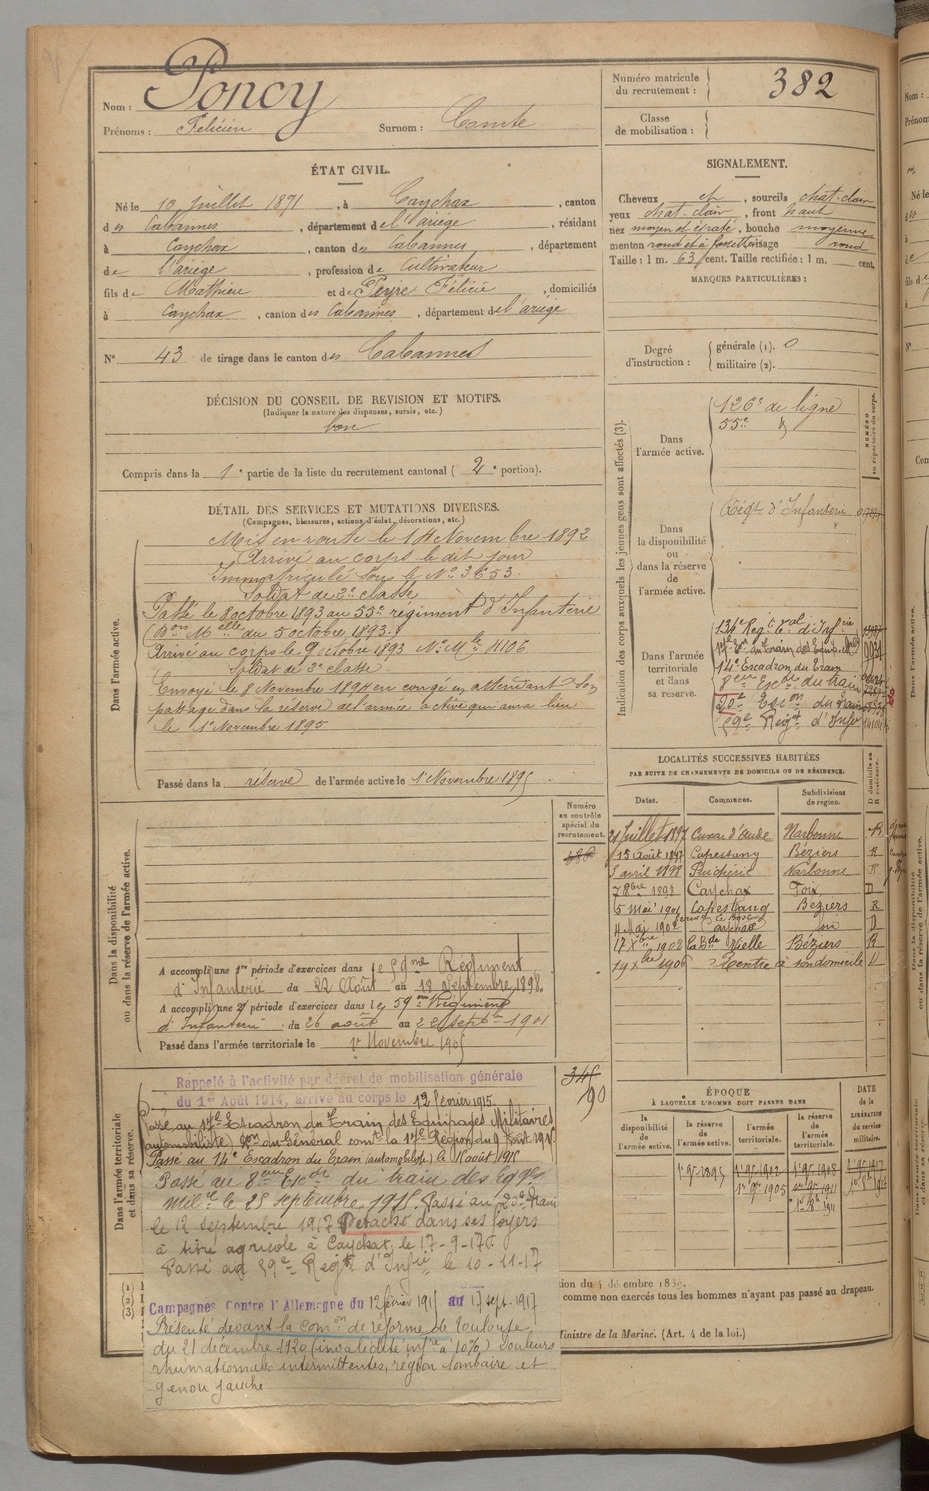 Nom : Poncy
Prénoms : Félicien Surnom : Comte
Numéro matricule du recrutement : 382
Classe de mobilisation :
ÉTAT CIVIL.
Né le 10 Juillet 1871, à Caychax, canton
des Cabannes, département de l'ariège, résidant
à Caychax, canton des Cabannes, département
de l'ariège, profession de Cultivateur
fils de Mathieu et de Peyre Félicie, domiciliés
à Caychax, canton des Cabannes, département de l'ariège
N° 43 de tirage dans le canton des Cabannes
DÉCISION DU CONSEIL DE REVISION ET MOTIFS.
(Indiquer la nature des dispenses, sursis, etc.)
bon
Compris dans la 1e partie de la liste du recrutement cantonal (2e portion).
DÉTAIL DES SERVICES ET MUTATIONS DIVERSES.
(Campagnes, blessures, actions d'éclat, décorations, etc.)
Dans l'armée active.
Mis en route le 14 Novembre 1892
Arrivé au corps le dit jour
Immatriculé sous le N° 3653
Soldat de 2e classe
Passé le 8 octobre 1893 au 55e régiment d'Infanterie
du 5 octobre 1893.)
Arrivé au corps le 9 octobre 1893 N° Mle 4106
Soldat de 2e classe.
Envoyé le 8 Novembre 1894 en congé en attendant son
passage dans la réserve de l'armée active qui aura lieu
le 1er Novembre 1895
Passé dans la réserve de l'armée active le 1 Novembre 1895
Numéro au contrôle spécial du recrutement.
Dans la disponibilité ou dans la réserve de l'armée active.
A accompli une 1re période d'exercices dans le 59me Régiment
d'Infanterie du 22 Août au 18 Septembre 1898
A accompli une 2e période d'exercices dans le 59me Régiment
d'Infanterie du 26 août au 22 septbre 1901
Passé dans l'armée territoriale le 1er Novembre 1905
345
90
Dans l'armée territoriale et dans sa réserve.
Rappelé à l'activité par décret de mobilisation générale
du 1er Août 1914, arrivé au corps le 12 février 1915.
Passé au 17e Escadron du Train des Equipages Militaires
(automobiliste) on du Général comt la 17e Région du 9 Août 1915
Passé au 14e Escadron du Train (automobiliste) le 1 août 1915
Passé au 8eme Escon du train des Eqges
Milres le 25 septembre 1915. Passé au 20e Train
le 12 septembre 1917 Détaché dans ses foyers
à titre agricole à Caychax, le 17-9-17.
Passé au 59e Regt d'Infie le 10-11-17
Campagnes contre l'Allemagne du 12 février 1915 au 17 sept. 1917
Présenté devant la comon de réforme de Toulouse
du 21 décembre 1920 (invalidité infre à 10%) Douleurs
rhumatismales intermittentes, région lombaire et
genou gauche
SIGNALEMENT.
Cheveux et, sourcils chat. clair
yeux chat. clair, front haut
nez moyen et épaté, bouche moyenne
menton rond et à fossette visage rond
Taille : 1 m. 63 cent. Taille rectifiée : 1 m. cent.
MARQUES PARTICULIÈRES :
Degré d'instruction : générale (1). 0
militaire (2).
Indication des corps auxquels les jeunes gens sont affectés (3).
NUMÉRO au répertoire du corps.
Dans l'armée active.
126e de ligne
55e d
Dans la disponibilité ou dans la réserve de l'armée active.
Régt d'Infanterie
Dans l'armée territoriale et dans sa réserve.
134e Regt Tal d'Infrie
17e Eon du Train des Equip. Mil
14e Escadron du Train
8eme Escon du train
20e Escon du Train
59e Regt d'Infie
LOCALITÉS SUCCESSIVES HABITÉES
PAR SUITE DE CHANGEMENTS DE DOMICILE OU DE RÉSIDENCE.
Dates. Communes. Subdivisions de région. D domicile ou R résidence.
21 Juillet 1897 Cuxac d'aude Narbonne R
15 août 1897 Capestang Béziers R
5 avril 1898 Narbonne R
7 8bre 1898 Caychax Foix D
5 Mai 1901 Capestang Béziers R
4 Mai 1902 Caychax Foix D
17 Xbre 1902 Vielle Béziers R
19 Xbre 1906 Rentre à son domicile D
ÉPOQUE
À LAQUELLE L'HOMME DOIT PASSER DANS
la disponibilité de l'armée active.
la réserve de l'armée active.
l'armée territoriale.
la réserve de l'armée territoriale.
DATE de la LIBÉRATION du service militaire.
1er 9bre 1895
1er 9bre 1905
(1)
(2)
(3)
tion du 4 décembre 1889.
comme non exercés tous les hommes n'ayant pas passé au drapeau.
Ministre de la Marine. (Art. 4 de la loi.)